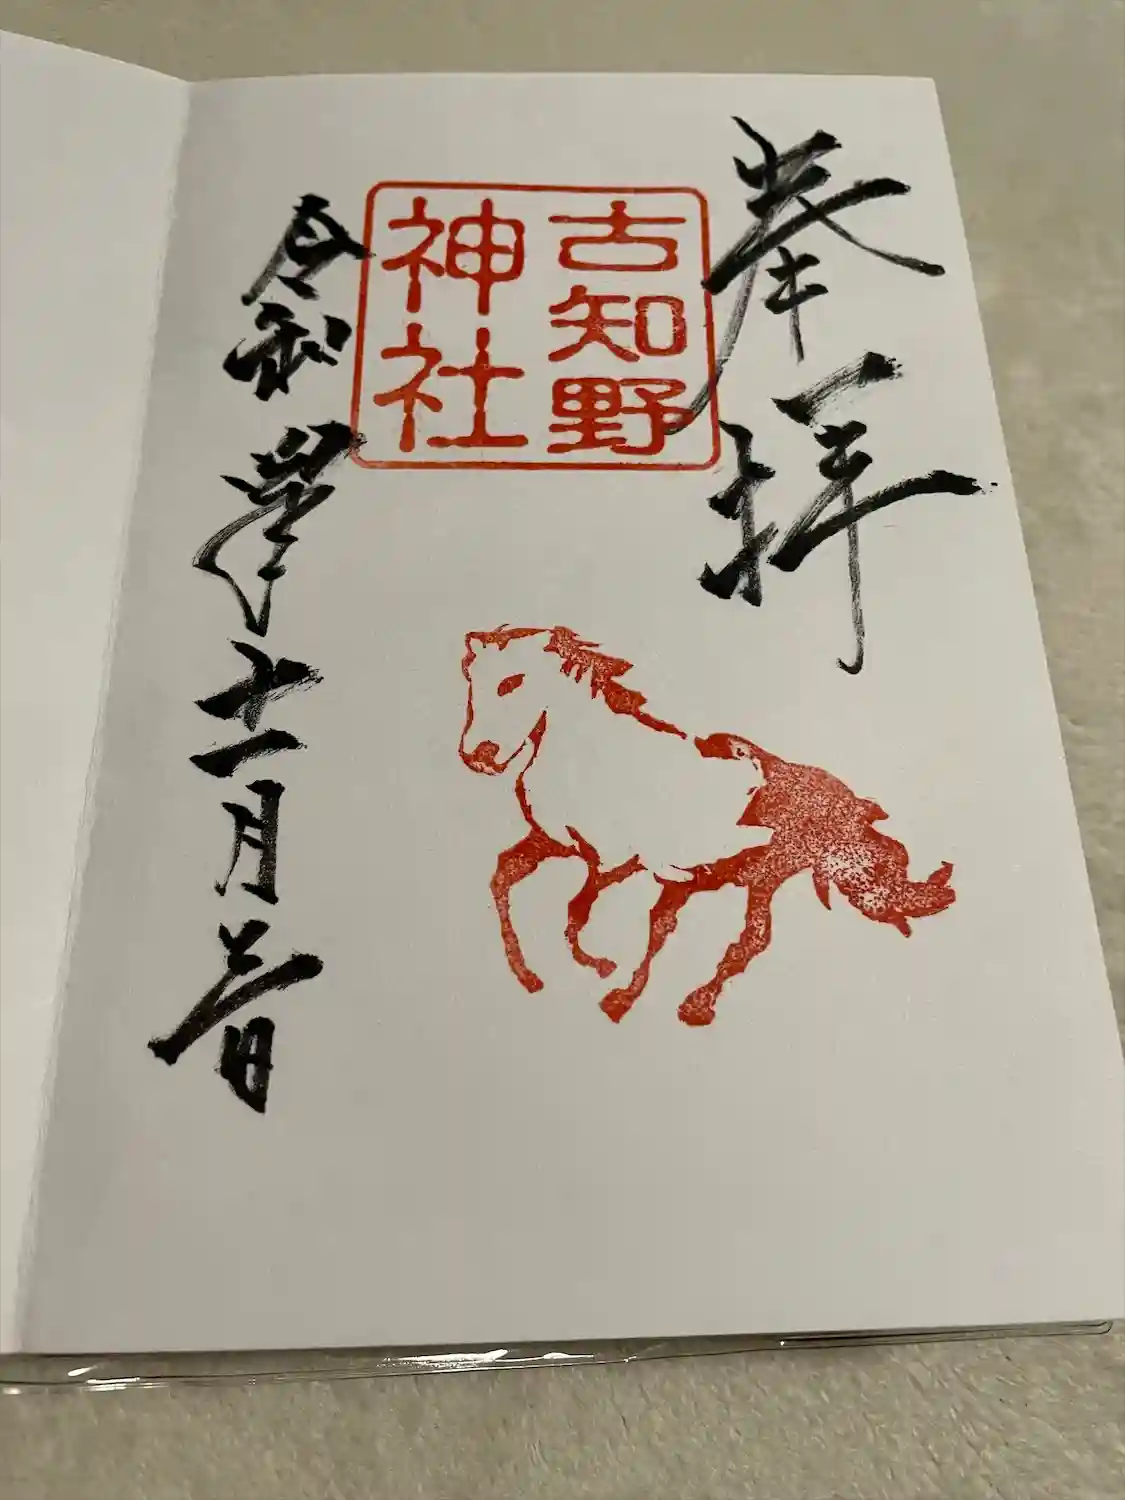 奉拝
古知野
神社
令和 年十一月三日